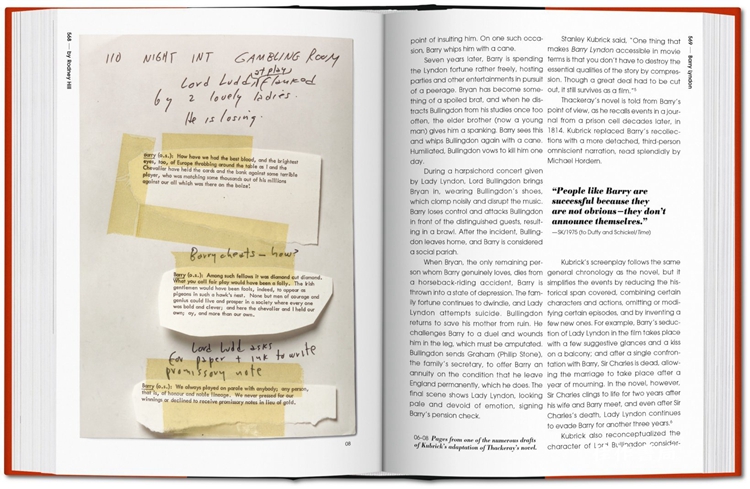 568 — by Rodney Hill
110 NIGHT INT GAMBLING ROOM
at play
Lord Ludd flanked
by 2 lovely ladies.
He is losing.
Barry (o.s.): How have we had the best blood, and the brightest
eyes, too, of Europe throbbing around the table as I and the
Chevalier have held the cards and the bank against some terrible
player, who was matching some thousands out of his millions
against our all which was there on the baize!
Barry cheats — how?
Barry (o.s.): Among such fellows it was diamond cut diamond.
What you call fair play would have been a folly. The Irish
gentlemen would have been fools, indeed, to appear as
pigeons in such a hawk's nest. None but men of courage and
genius could live and prosper in a society where every one
was bold and clever; and here the chevalier and I held our
own; ay, and more than our own.
Lord Ludd asks
for paper + ink to write
promissory note
Barry (o.s.): We always played on parole with anybody; any person,
that is, of honour and noble lineage. We never pressed for our
winnings or declined to receive promissory notes in lieu of gold.
08
point of insulting him. On one such occa-
sion, Barry whips him with a cane.
Seven years later, Barry is spending
the Lyndon fortune rather freely, hosting
parties and other entertainments in pursuit
of a peerage. Bryan has become some-
thing of a spoiled brat, and when he dis-
tracts Bullingdon from his studies once too
often, the elder brother (now a young
man) gives him a spanking. Barry sees this
and whips Bullingdon again with a cane.
Humiliated, Bullingdon vows to kill him one
day.
During a harpsichord concert given
by Lady Lyndon, Lord Bullingdon brings
Bryan in, wearing Bullingdon's shoes,
which clomp noisily and disrupt the music.
Barry loses control and attacks Bullingdon
in front of the distinguished guests, result-
ing in a brawl. After the incident, Bulling-
don leaves home, and Barry is considered
a social pariah.
When Bryan, the only remaining per-
son whom Barry genuinely loves, dies from
a horseback-riding accident, Barry is
thrown into a state of depression. The fam-
ily fortune continues to dwindle, and Lady
Lyndon attempts suicide. Bullingdon
returns to save his mother from ruin. He
challenges Barry to a duel and wounds
him in the leg, which must be amputated.
Bullingdon sends Graham (Philip Stone),
the family's secretary, to offer Barry an
annuity on the condition that he leave
England permanently, which he does. The
final scene shows Lady Lyndon, looking
pale and devoid of emotion, signing
Barry's pension check.
06-08 Pages from one of the numerous drafts
of Kubrick's adaptation of Thackeray's novel.
Stanley Kubrick said, "One thing that
makes Barry Lyndon accessible in movie
terms is that you don't have to destroy the
essential qualities of the story by compres-
sion. Though a great deal had to be cut
out, it still survives as a film."
Thackeray's novel is told from Barry's
point of view, as he recalls events in a jour-
nal from a prison cell decades later, in
1814. Kubrick replaced Barry's recollec-
tions with a more detached, third-person
omniscient narration, read splendidly by
Michael Hordern.
"People like Barry are
successful because they
are not obvious—they don't
announce themselves."
—SK/1975 (to Duffy and Schickel/Time)
Kubrick's screenplay follows the same
general chronology as the novel, but it
simplifies the events by reducing the his-
torical span covered, combining certain
characters and actions, omitting or modi-
fying certain episodes, and by inventing a
few new ones. For example, Barry's seduc-
tion of Lady Lyndon in the film takes place
with a few suggestive glances and a kiss
on a balcony; and after a single confron-
tation with Barry, Sir Charles is dead, allow-
ing the marriage to take place after a
year of mourning. In the novel, however,
Sir Charles clings to life for two years after
his wife and Barry meet, and even after Sir
Charles's death, Lady Lyndon continues
to evade Barry for another three years.
Kubrick also reconceptualized the
character of Lord Bullingdon consider-
569 — Barry Lyndon